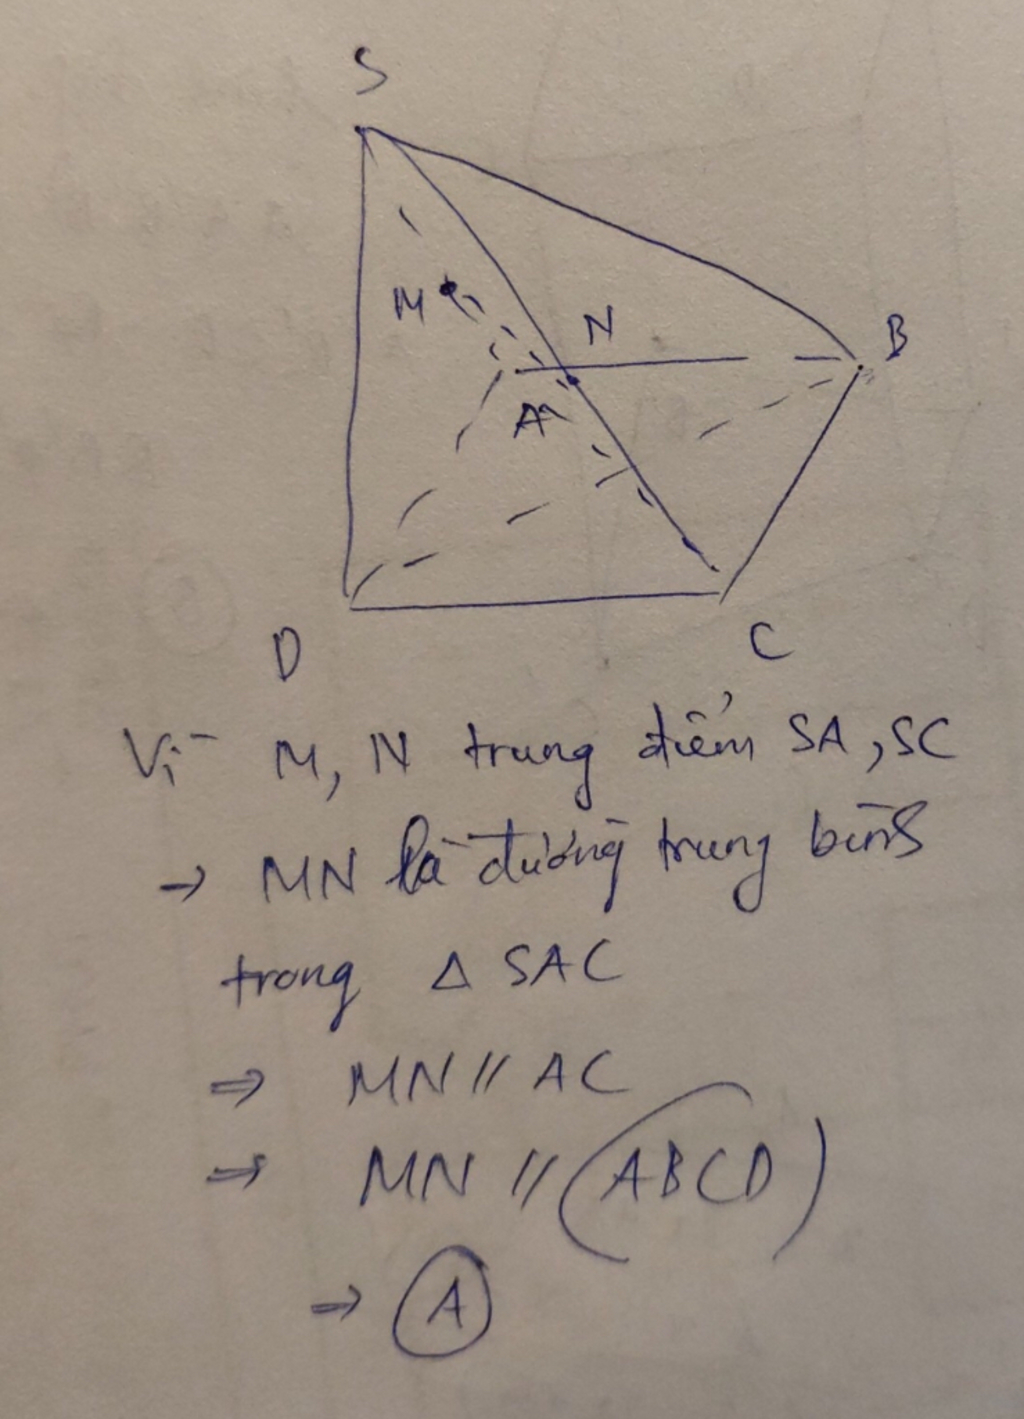 S
M
N
B
A
D
C
Vì M, N trung điểm SA, SC
→ MN là đường trung bình
trong Δ SAC
⇒ MN // AC
⇒ MN // (ABCD)
⇒ A